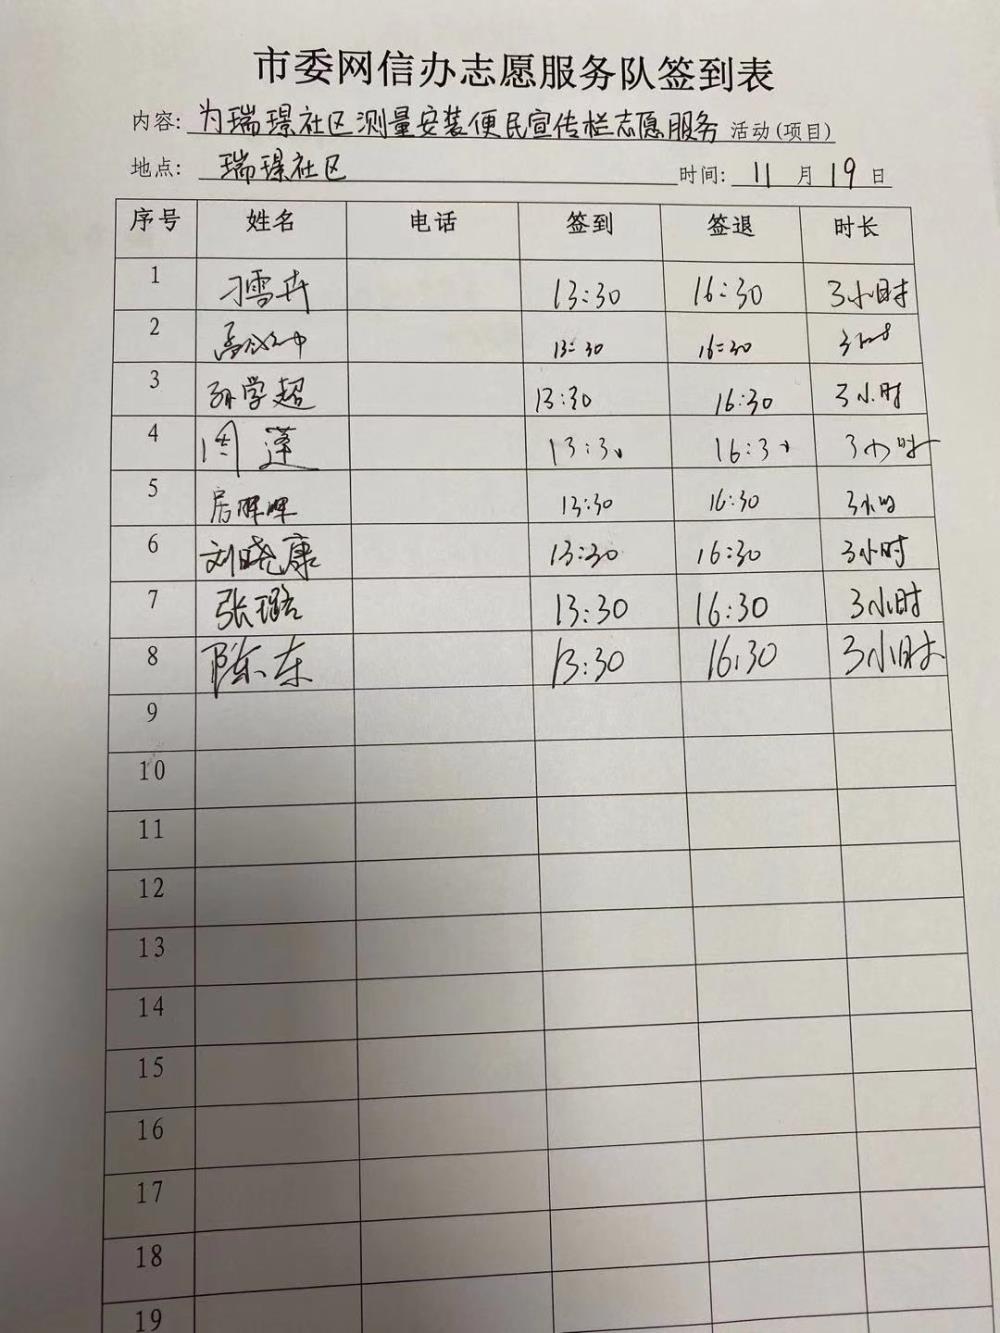 市委网信办志愿服务队签到表
内容: 为瑞璟社区测量安装便民宣传栏志愿服务 活动(项目)
地点: 瑞璟社区 时间: 11 月 19 日
序号 姓名 电话 签到 签退 时长
1 刁雪卉 13:30 16:30 3小时
2 13:30 16:30 3小时
3 孙学超 13:30 16:30 3小时
4 周莲 13:30 16:30 3小时
5 房晖晖 13:30 16:30 3小时
6 刘晓康 13:30 16:30 3小时
7 张璐 13:30 16:30 3小时
8 陈东 13:30 16:30 3小时
9
10
11
12
13
14
15
16
17
18
19